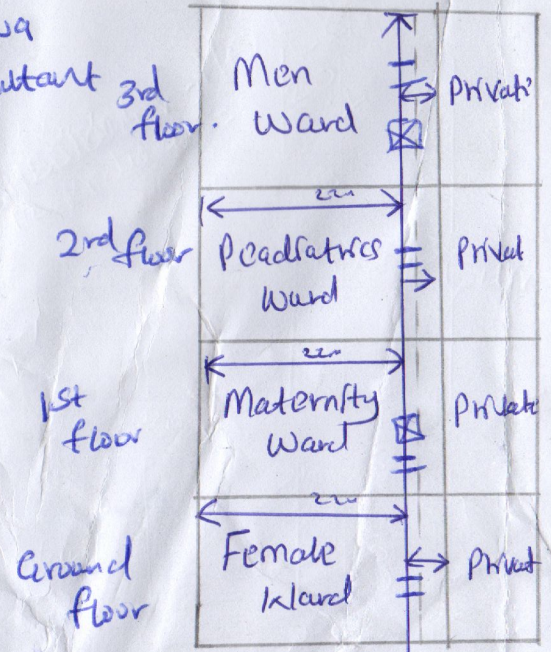 3rd floor.
Men Ward
Private
22m
2rd floor
Peadiatrics Ward
Privat
22m
1st floor
Maternity Ward
Private
22m
Ground floor
Female Ward
Privat